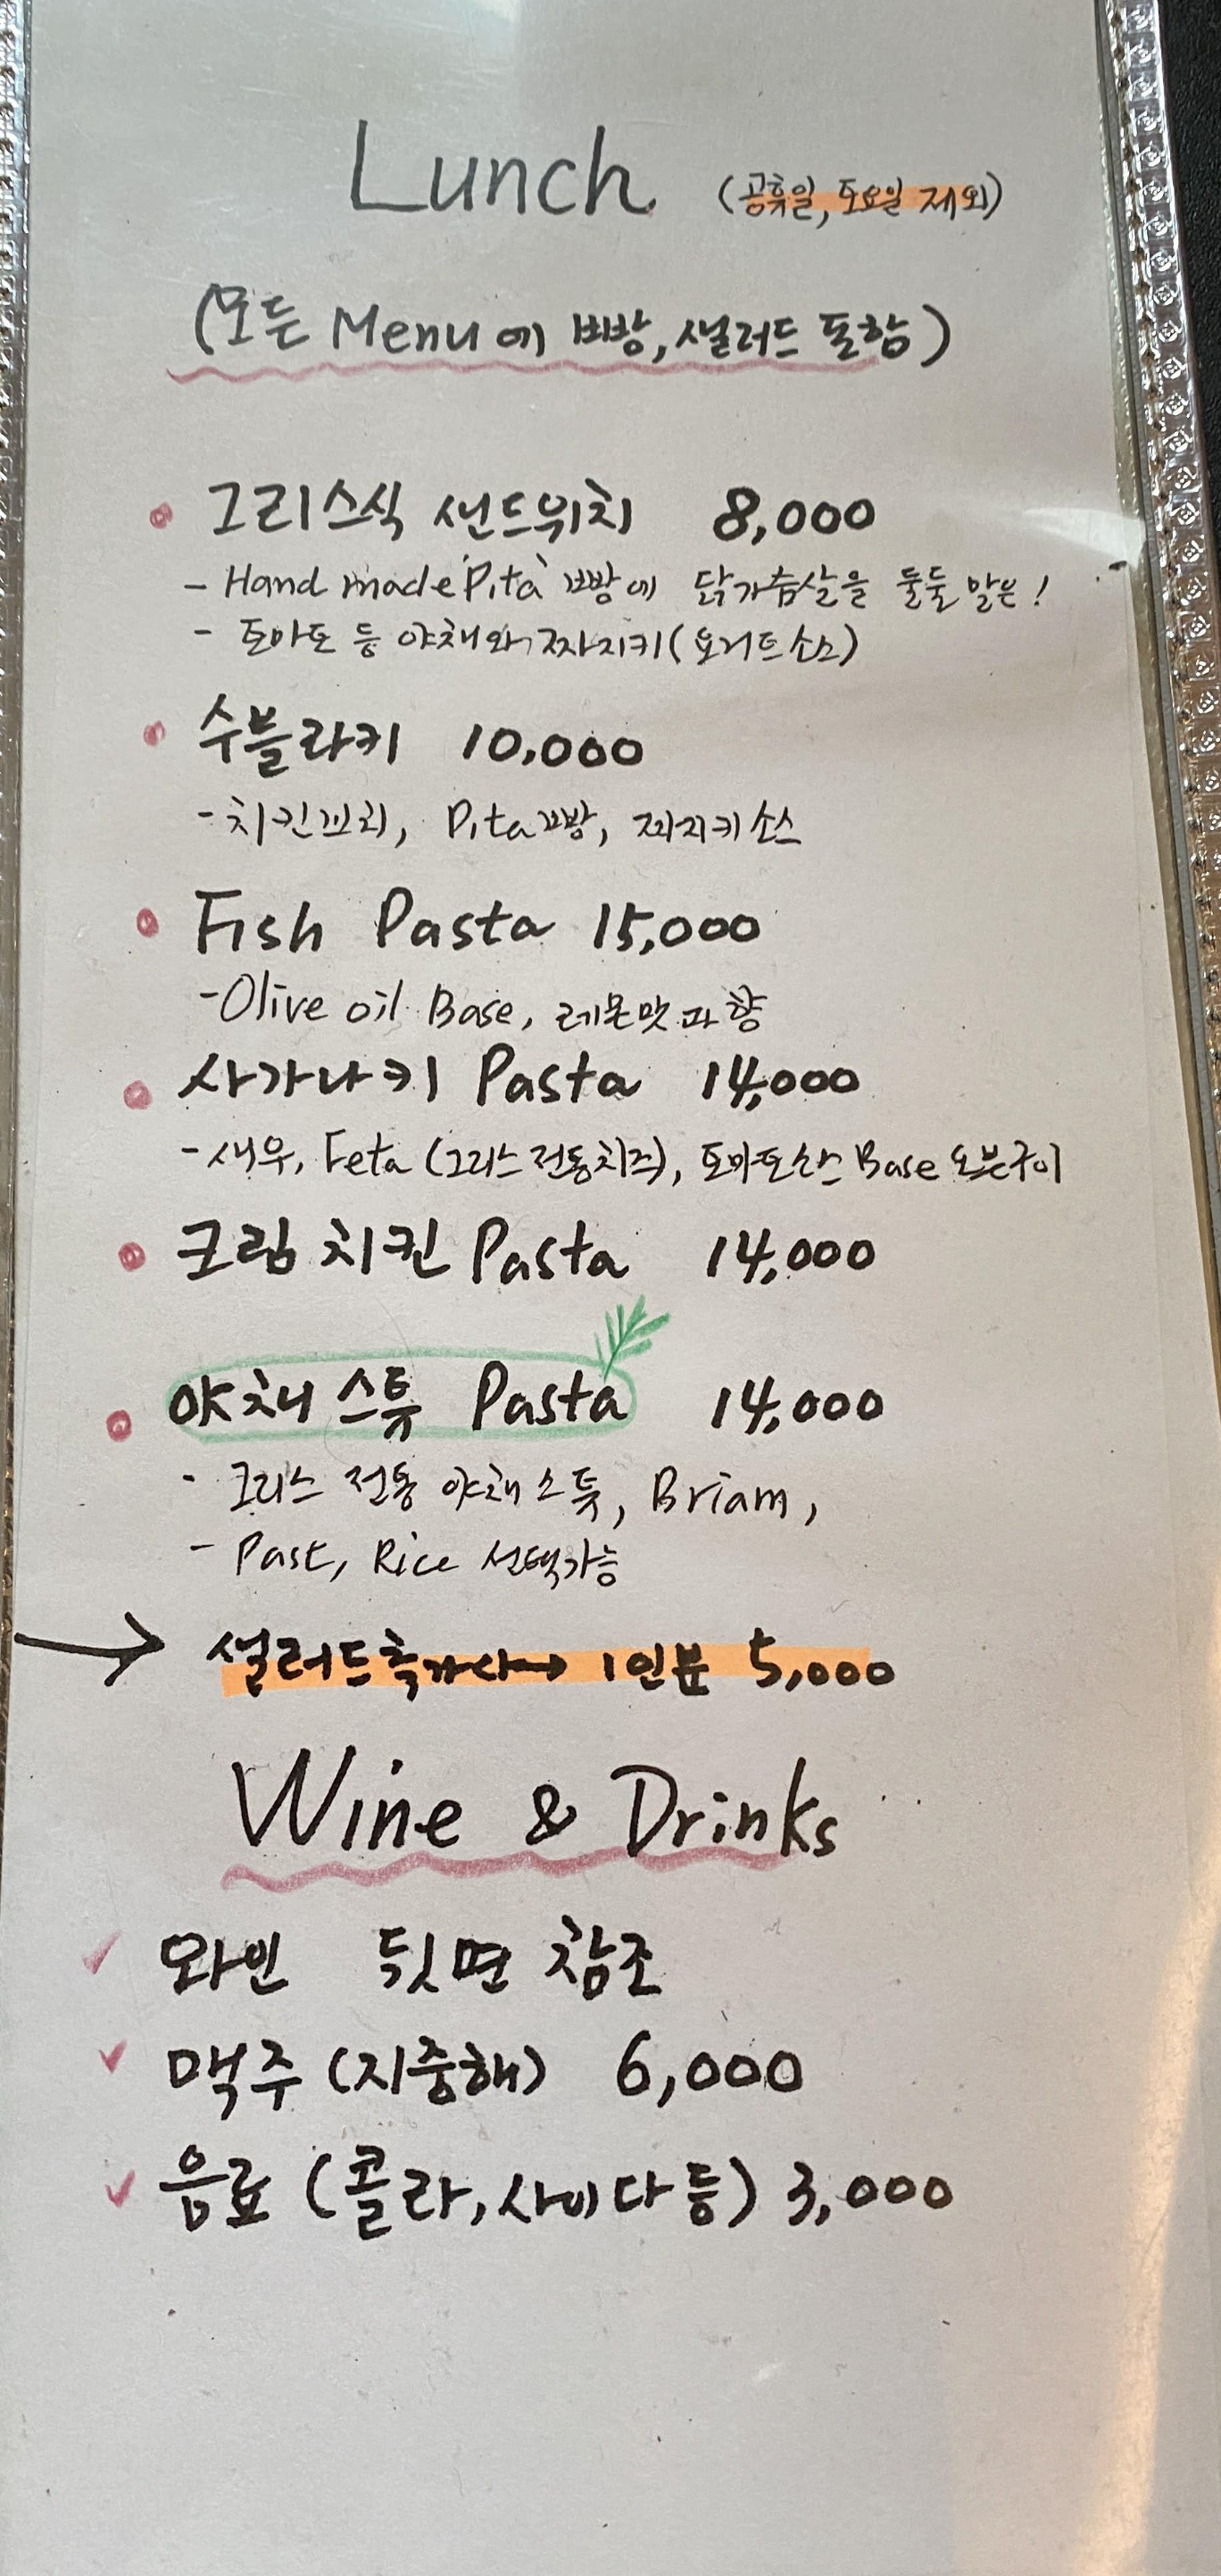 Lunch (공휴일, 토요일 제외)
(모든 Menu에 빵, 샐러드 포함)
그리스식 샌드위치 8,000
- Hand made 'Pita' 빵에 닭가슴살을 둘둘 말은!
- 토마토 등 야채와 짜지키(요거트소스)
수블라키 10,000
- 치킨꼬치, Pita빵, 짜지키소스
Fish Pasta 15,000
- Olive oil Base, 레몬맛과 향
사가나키 Pasta 14,000
- 새우, Feta (그리스 전통치즈), 토마토소스 Base 오븐구이
크림 치킨 Pasta 14,000
야채 스튜 Pasta 14,000
- 그리스 전통 야채 스튜, Briam,
- Past, Rice 선택가능
→ 샐러드추가시→ 1인분 5,000
Wine & Drinks
✓ 와인 뒷면 참조
✓ 맥주 (지중해) 6,000
✓ 음료 (콜라, 사이다 등) 3,000